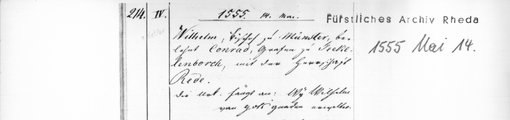 214. IV.
1555. 14. Mai.
Fürstliches Archiv Rheda
1555 Mai 14.
Wilhelm, Bischof zu Münster, be-
lehnt Conrad, Grafen zu Teckle-
lenborch, mit der Herrschaft
Rede.
die Urk. fängt an: Wy Wilhelm
van gots gnaden